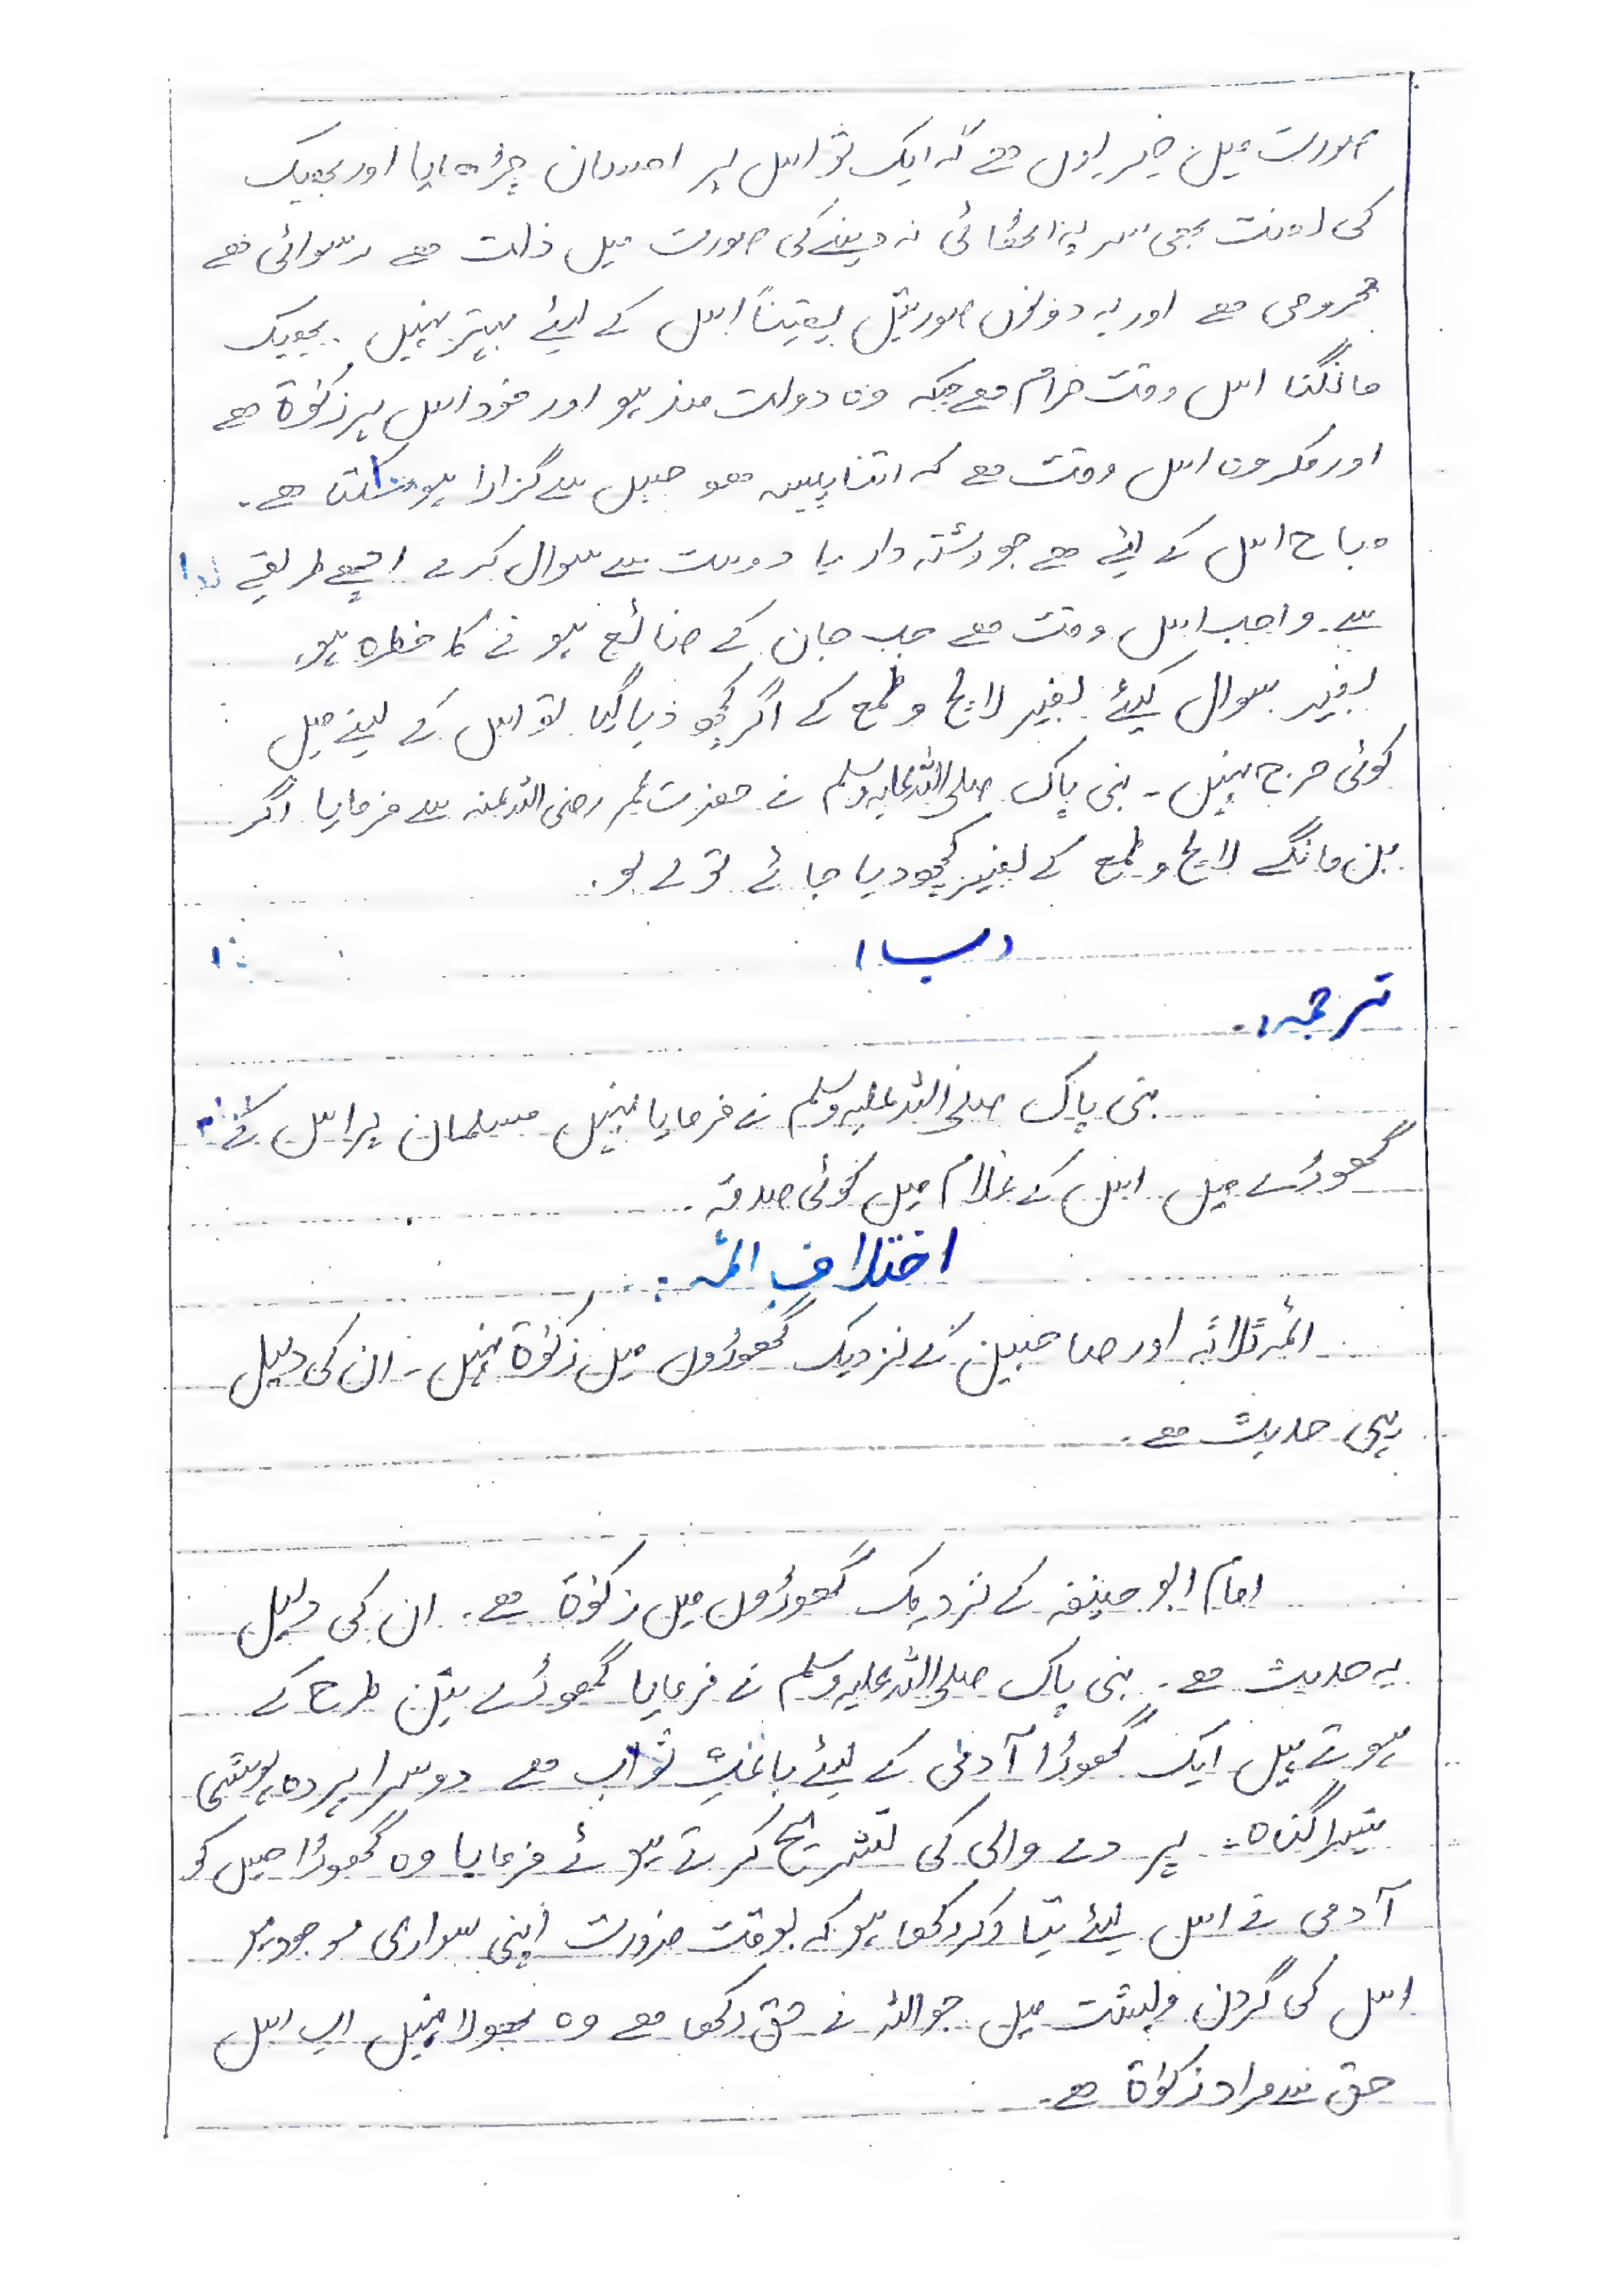 صورت میں خیر یوں ہے کہ ایک تو اس پر احسان چڑھایا اور بھیک
کی لعنت بھی سر پہ اٹھائی نہ دینے کی صورت میں ذلت ہے رسوائی ہے
محرومی ہے اور یہ دونوں صورتیں یقیناً اس کے لیئے بہتر نہیں۔ بھیک
مانگنا اس وقت حرام ہے جبکہ وہ دولت مند ہو اور خود اس پر زکوٰۃ ہے
اور مکروہ اس وقت ہے کہ اتنا پیسہ ہو جس سے گزارا ہو سکتا ہے۔
مباح اس کے لیئے ہے جو رشتہ دار یا دوست سے سوال کرے اچھے طریقے
سے۔ واجب اس وقت ہے جب جان کے ضائع ہونے کا خطرہ ہو۔
بغیر سوال کیئے بغیر لالچ و طمع کے اگر کچھ دیا گیا تو اس کے لینے میں
کوئی حرج نہیں۔ نبی پاک صلی اللہ علیہ وسلم نے حضرت عمر رضی اللہ عنہ سے فرمایا اگر
بن مانگے لالچ و طمع کے بغیر کچھ دیا جائے تو لے لو۔
ترجمہ:۔
نبی پاک صلی اللہ علیہ وسلم نے فرمایا نہیں مسلمان پر اس کے
گھوڑے میں اس کے غلام میں کوئی صدقہ۔
اختلافِ ائمہ:
ائمہ ثلاثہ اور صاحبین کے نزدیک گھوڑوں میں زکوٰۃ نہیں۔ ان کی دلیل
یہی حدیث ہے۔
امام ابو حنیفہ کے نزدیک گھوڑوں میں زکوٰۃ ہے۔ ان کی دلیل
یہ حدیث ہے۔ نبی پاک صلی اللہ علیہ وسلم نے فرمایا گھوڑے تین طرح کے
ہوتے ہیں ایک گھوڑا آدمی کے لیئے باعثِ ثواب ہے دوسرا پردہ پوشی
تیسرا گناہ۔ پردے والی کی تشریح کرتے ہوئے فرمایا وہ گھوڑا جس کو
آدمی نے اس لیئے تیار کر رکھا ہو کہ بوقت ضرورت اپنی سواری موجود ہو
اس کی گردن و پشت میں جو اللہ نے حق رکھا ہے وہ بھولا نہیں اب اس
حق سے مراد زکوٰۃ ہے۔